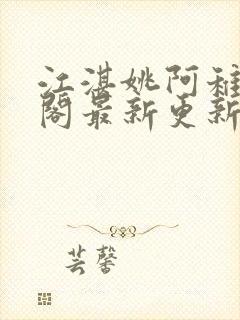 江湛姚阿稚
阁最新更新
芸馨